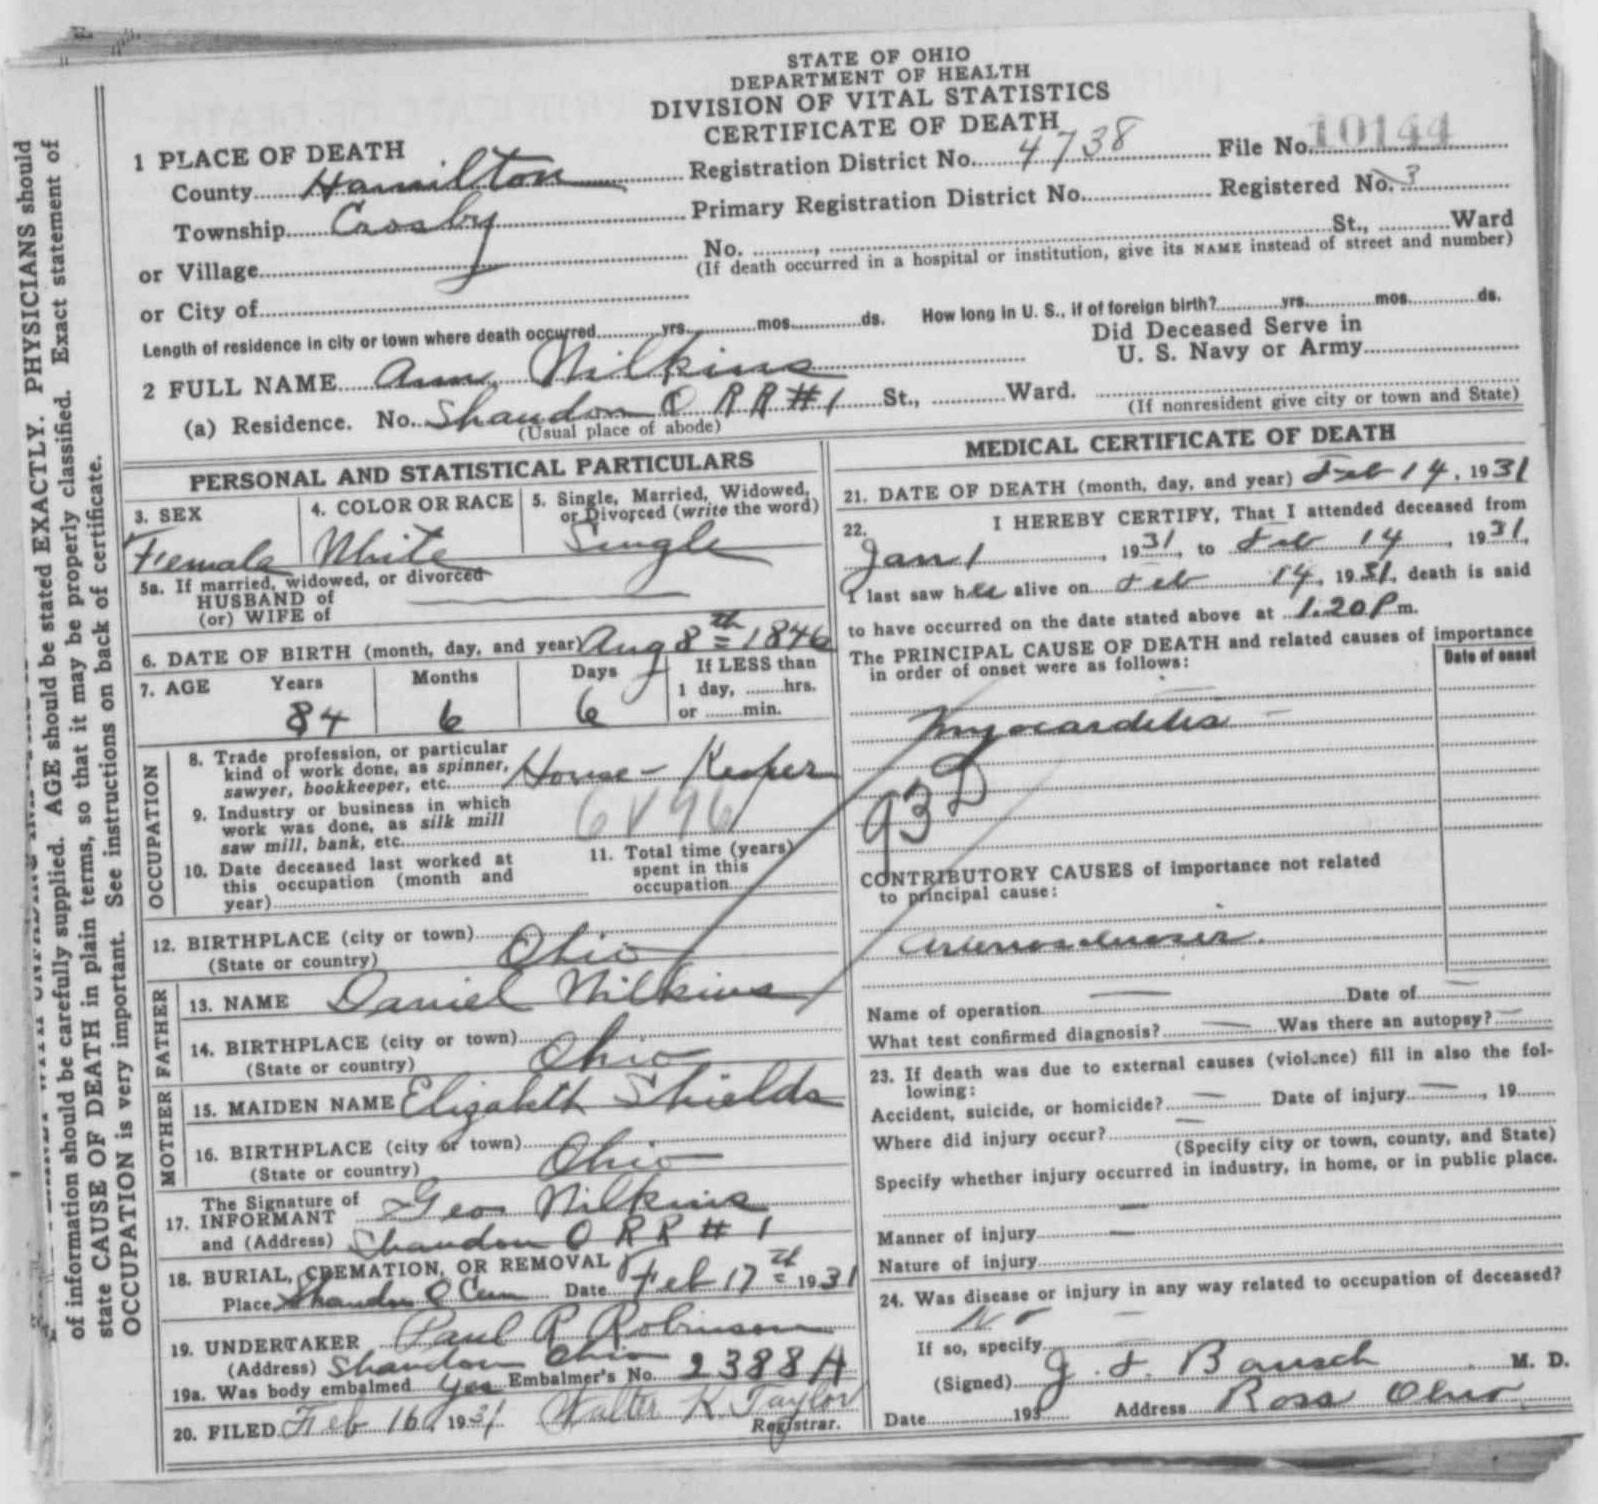 STATE OF OHIO
DEPARTMENT OF HEALTH
DIVISION OF VITAL STATISTICS
CERTIFICATE OF DEATH
1 PLACE OF DEATH
County Hamilton Registration District No. 4738 File No. 10144
Township Crosby Primary Registration District No. Registered No. 3
or Village No. , St., Ward
(If death occurred in a hospital or institution, give its NAME instead of street and number)
or City of
Length of residence in city or town where death occurred yrs. mos. ds. How long in U. S., if of foreign birth? yrs. mos. ds.
2 FULL NAME Ann Wilkins Did Deceased Serve in
U. S. Navy or Army
(a) Residence. No. Shandon O RR #1 St., Ward.
(Usual place of abode) (If nonresident give city or town and State)
PERSONAL AND STATISTICAL PARTICULARS
3. SEX 4. COLOR OR RACE 5. Single, Married, Widowed,
or Divorced (write the word)
Female White Single
5a. If married, widowed, or divorced
HUSBAND of
(or) WIFE of
6. DATE OF BIRTH (month, day, and year) Aug 8th 1846
7. AGE Years Months Days If LESS than
1 day, hrs.
or min.
84 6 6
OCCUPATION
8. Trade profession, or particular
kind of work done, as spinner,
sawyer, bookkeeper, etc. House-Keeper
9. Industry or business in which
work was done, as silk mill
saw mill, bank, etc. 6V96
10. Date deceased last worked at
this occupation (month and
year)
11. Total time (years)
spent in this
occupation
12. BIRTHPLACE (city or town)
(State or country) Ohio
FATHER
13. NAME Daniel Wilkins
14. BIRTHPLACE (city or town)
(State or country) Ohio
MOTHER
15. MAIDEN NAME Elizabeth Shields
16. BIRTHPLACE (city or town)
(State or country) Ohio
17. The Signature of
INFORMANT Geo Wilkins
and (Address) Shandon O RR #1
18. BURIAL, CREMATION, OR REMOVAL
Place Shandon O Cem Date Feb 17th 1931
19. UNDERTAKER Paul R Robinson
(Address) Shandon Ohio
19a. Was body embalmed yes Embalmer's No. 2388A
20. FILED Feb 16, 1931 Walter K. Taylor
Registrar.
MEDICAL CERTIFICATE OF DEATH
21. DATE OF DEATH (month, day, and year) Feb 14, 1931
22. I HEREBY CERTIFY, That I attended deceased from
Jan 1, 1931, to Feb 14, 1931,
I last saw her alive on Feb 14, 1931, death is said
to have occurred on the date stated above at 1.20 P m.
The PRINCIPAL CAUSE OF DEATH and related causes of importance
in order of onset were as follows:
Date of onset
Myocarditis
93D
CONTRIBUTORY CAUSES of importance not related
to principal cause:
Name of operation Date of
What test confirmed diagnosis? Was there an autopsy?
23. If death was due to external causes (violence) fill in also the fol-
lowing:
Accident, suicide, or homicide? Date of injury , 19
Where did injury occur?
(Specify city or town, county, and State)
Specify whether injury occurred in industry, in home, or in public place.
Manner of injury
Nature of injury
24. Was disease or injury in any way related to occupation of deceased?
No
If so, specify
(Signed) J. F. Bausch M. D.
Date 193 Address Ross Ohio
of information should be carefully supplied. AGE should be stated EXACTLY. PHYSICIANS should
state CAUSE OF DEATH in plain terms, so that it may be properly classified. Exact statement of
OCCUPATION is very important. See instructions on back of certificate.